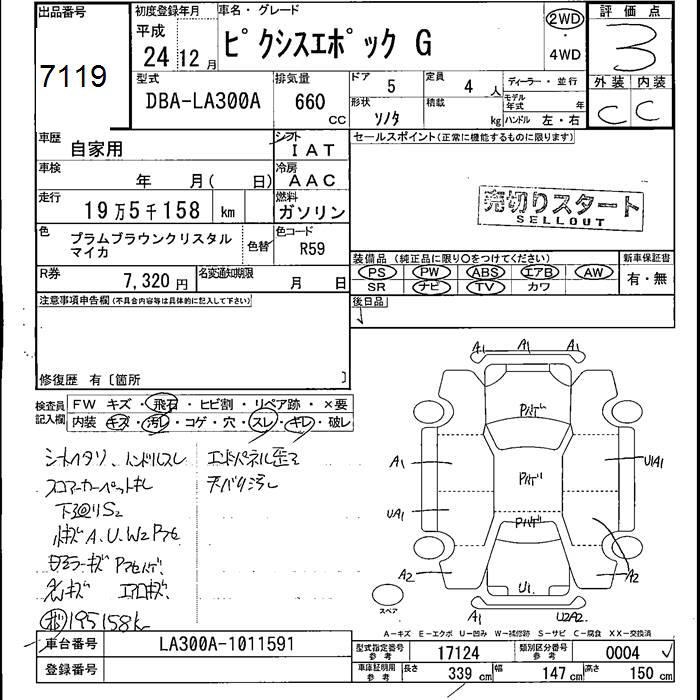 出品番号
7119
初度登録年月
平成
24年12月
車名・グレード
ピクシスエポック G
2WD
・
4WD
評価点
3
外装 内装
C C
型式
DBA-LA300A
排気量
660
CC
ドア
5
定員
4 人
形状
ソノタ
積載
kg
ディーラー・並行
モデル年式 年
ハンドル 左・右
車歴
自家用
シフト
IAT
車検
年 月( 日)
冷房
AAC
走行
19万5千158 km
燃料
ガソリン
色
プラムブラウンクリスタル
マイカ
色替
色コード
R59
R券
7,320円
名変通知期限
月 日
セールスポイント(正常に機能するものに限ります)
売切りスタート
SELLOUT
装備品 (純正品に限り○をつけてください)
PS PW ABS エアB AW
SR ナビ TV カワ
新車保証書
有・無
後日品
注意事項申告欄(不具合内容等は具体的に記入して下さい)
修復歴 有〔箇所 〕
検査員
記入欄
FW キズ・飛石・ヒビ割・リペア跡・×要
内装 キズ・汚レ・コゲ・穴・スレ・キレ・破レ
シートヘタリ、ハンドルスレ
エンドパネル歪み
フロアーカーペットキレ
天バリ汚レ
下廻りS2
195158k
A1 A1 A1
Pハゲ
A1
U1A1
Pハゲ
UA1
Pハゲ
A2
A2
U1
スペア
A1
U2A2
A-キズ E-エクボ U-凹み W-補修跡 S-サビ C-腐食 XX-交換済
車台番号
LA300A-1011591
登録番号
型式指定番号
参考
17124
類別区分番号
参考
0004
車庫証明用
参考
長さ 339 cm 幅 147 cm 高さ 150 cm